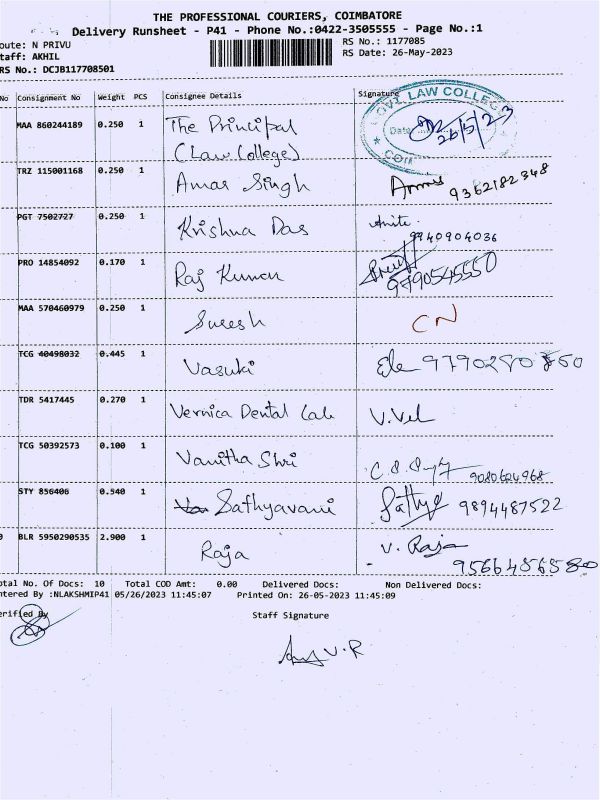 THE PROFESSIONAL COURIERS, COIMBATORE
Delivery Runsheet - P41 - Phone No.:0422-3505555 - Page No.:1
oute: N PRIVU
RS No.: 1177085
taff: AKHIL
RS Date: 26-May-2023
RS No.: DCJB117708501
No Consignment No Weight PCS Consignee Details Signature
GOVT LAW COLLEGE
MAA 860244189 0.250 1 The Principal
Date: 26/5/23
(Law College)
TRZ 115001168 0.250 1 Amar Singh 9362182348
PGT 7502727 0.250 1 Krishna Das Anite
9940904036
PRO 14854092 0.170 1 Raj Kumar
9790545550
MAA 570460979 0.250 1 Suresh CN
TCG 40498032 0.445 1 Vasuki Ele
TDR 5417445 0.270 1 Vernica Dental Lab V.Vel
TCG 50392573 0.100 1 Vanitha Shri
9080624968
STY 856406 0.540 1 Sathyavani Sathya 9894487522
0 BLR 5950290535 2.900 1 Raja V. Raja
otal No. Of Docs: 10 Total COD Amt: 0.00 Delivered Docs: Non Delivered Docs:
ntered By :NLAKSHMIP41 05/26/2023 11:45:07 Printed On: 26-05-2023 11:45:09
erified By Staff Signature
V.R